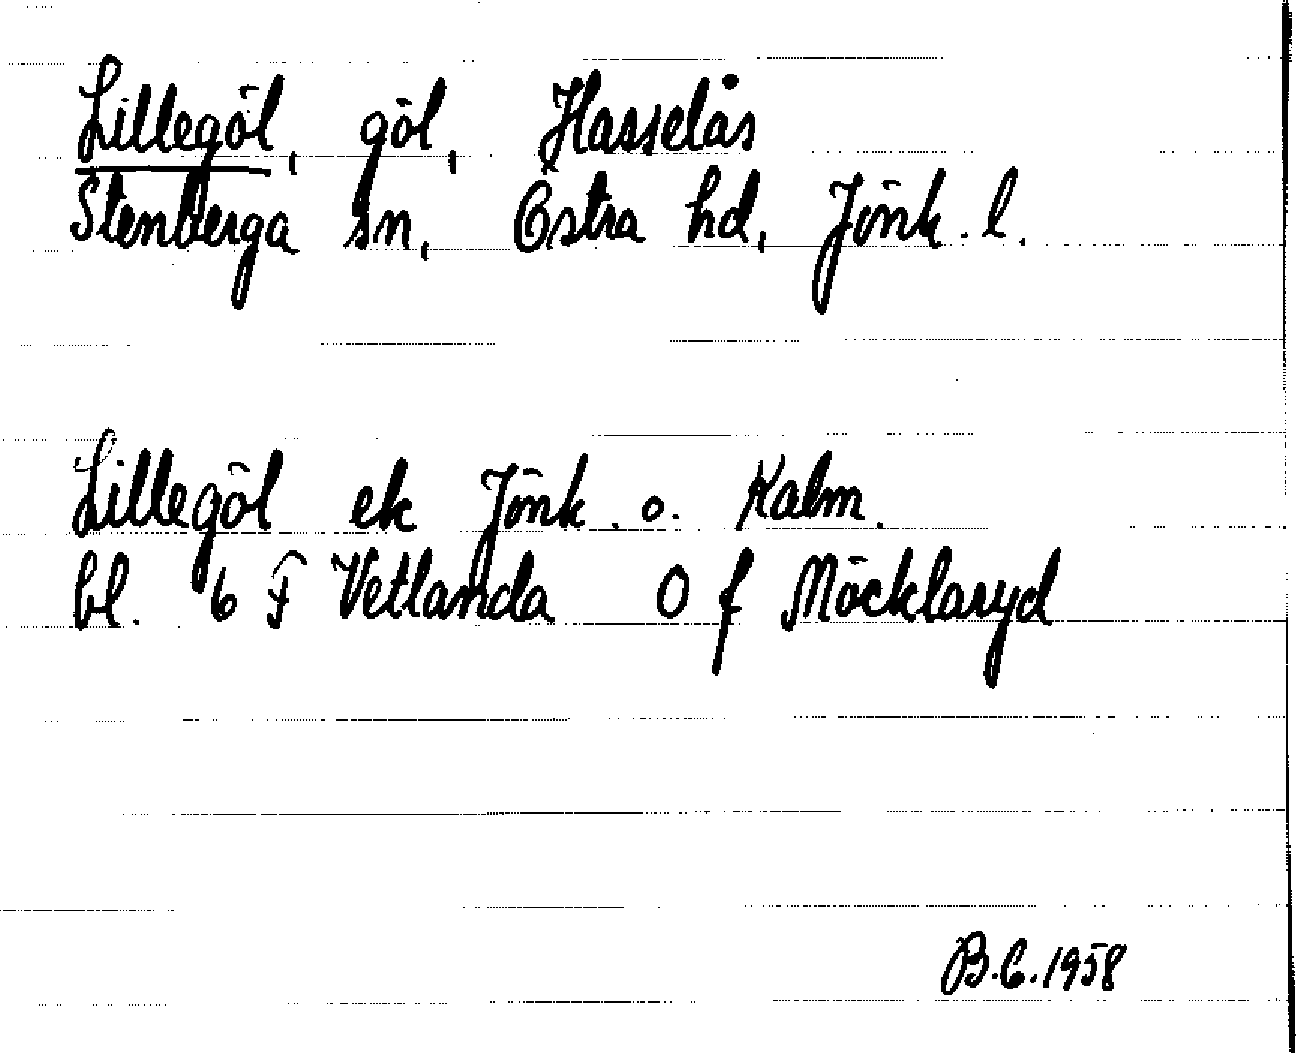 Lillegöl, göl, Hasselås
Stenberga sn, Östra hd, Jönk. l.
Lillegöl ek Jönk. o. Kalm.
bl. 6 F Vetlanda O f Möcklaryd
B.C.1958